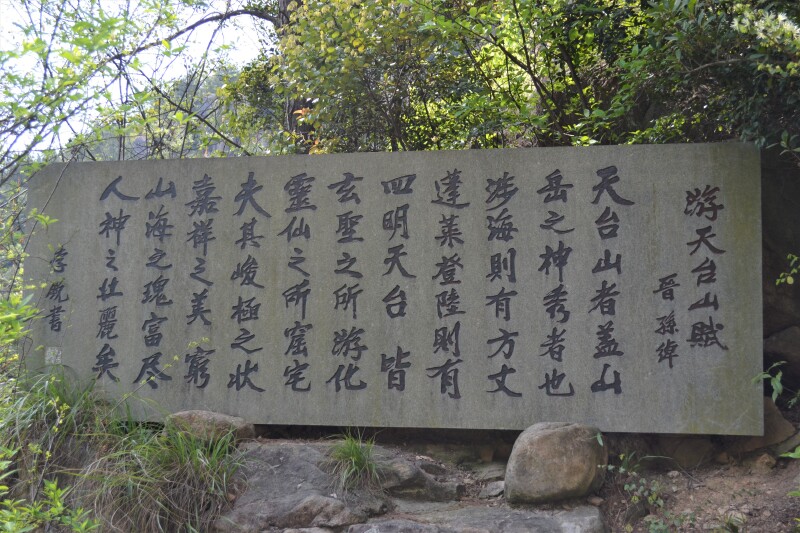 游天台山賦
晉孫綽
天台山者蓋山
岳之神秀者也
涉海則有方丈
蓬萊登陸則有
四明天台皆
玄聖之所游化
靈仙之所窟宅
夫其峻極之状
嘉祥之美窮
山海之瑰富尽
人神之壮麗矣
李書